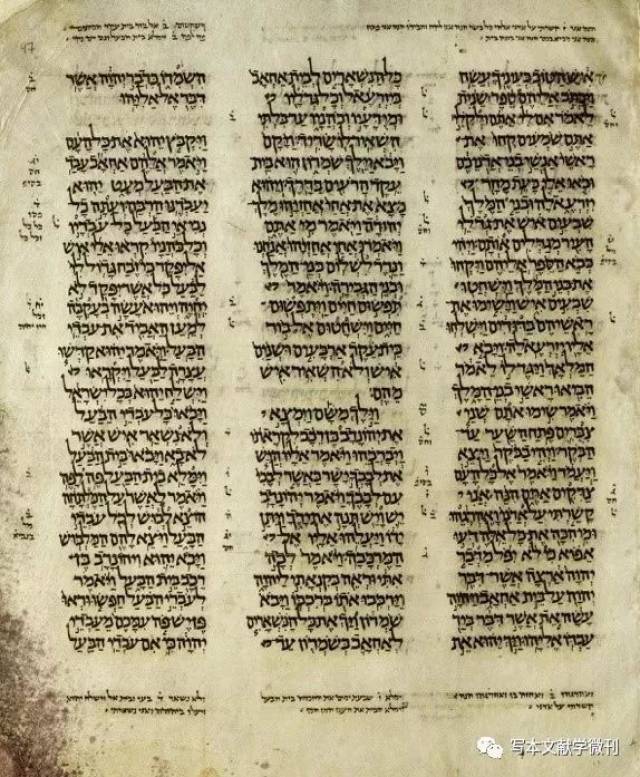 47
איש הטוב בעיניך עשה
ויכתב אליהם ספר שנית
לאמר אם לי אתם ולקלי
אתם שמעים קחו את
ראשי אנשי בני אדניכם
ובאו אלי כעת מחר
יזרעאלה ובני המלך
שבעים איש את גדלי
העיר מגדלים אותם ויהי
כבא הספר אליהם ויקחו
את בני המלך וישחטו
שבעים איש וישימו את
ראשיהם בדודים וישלחו
אליו יזרעאלה ויבא
המלאך ויגד לו לאמר
הביאו ראשי בני המלך
ויאמר שימו אתם שני
צברים פתח השער עד
הבקר ויהי בבקר ויצא
ויעמד ויאמר אל כל העם
צדקים אתם הנה אני
קשרתי על אדני ואהרגהו
ומי הכה את כל אלה דעו
אפוא כי לא יפל מדבר
יהוה ארצה אשר דבר
יהוה על בית אחאב ויהוה
עשה את אשר דבר ביד
עבדו אליהו ויך יהוא את
כל הנשארים לבית אחאב
ביזרעאל וכל גדליו
ומידעיו וכהניו עד בלתי
השאיר לו שריד ויקם
ויבא וילך שמרון הוא בית
עקד הרעים בדרך ויהוא
מצא את אחי אחזיהו מלך
יהודה ויאמר מי אתם
ויאמרו אחי אחזיהו אנחנו
ונרד לשלום בני המלך
ובני הגבירה ויאמר
תפשום חיים ויתפשום
חיים וישחטום אל בור
בית עקד ארבעים ושנים
איש ולא השאיר איש
מהם
וילך משם וימצא
את יהונדב בן רכב לקראתו
ויברכהו ויאמר אליו היש
את לבבך ישר כאשר לבבי
עם לבבך ויאמר יהונדב
יש ויש תנה את ידך ויתן
ידו ויעלהו אליו אל
המרכבה ויאמר לכה
אתי וראה בקנאתי ליהוה
וירכבו אתו ברכבו ויבא
שמרון ויך את כל הנשארים
לאחאב בשמרון עד
השמדו כדבר יהוה אשר
דבר אל אליהו
ויקבץ יהוא את כל העם
ויאמר אלהם אחאב עבד
את הבעל מעט יהוא
יעבדנו הרבה ועתה כל
נביאי הבעל כל עבדיו
וכל כהניו קראו אלי איש
אל יפקד כי זבח גדול לי
לבעל כל אשר יפקד לא
יחיה ויהוא עשה בעקבה
למען האביד את עבדי
הבעל ויאמר יהוא קדשו
עצרה לבעל ויקראו
וישלח יהוא בכל ישראל
ויבאו כל עבדי הבעל
ולא נשאר איש אשר
לא בא ויבאו בית הבעל
וימלא בית הבעל פה לפה
ויאמר לאשר על המלתחה
הוצא לבוש לכל עבדי
הבעל ויצא להם המלבוש
ויבא יהוא ויהונדב בן
רכב בית הבעל ויאמר
לעבדי הבעל חפשו וראו
פן יש פה עמכם מעבדי
יהוה כי אם עבדי הבעל
写本文献学微刊